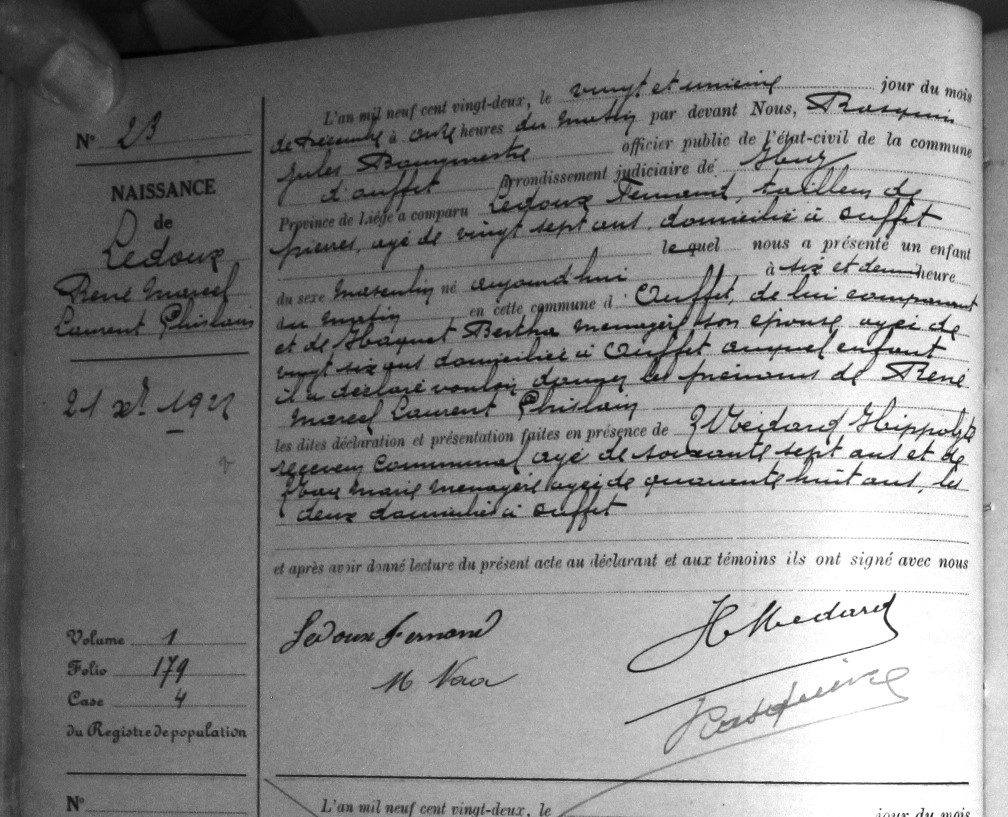 N° 23
NAISSANCE
de
Ledoux
René Marcel
Laurent Ghislain
21 xbre 1922
Volume 1
Folio 179
Case 4
du Registre de population
L'an mil neuf cent vingt-deux, le vingt et unième jour du mois
de décembre à onze heures du matin par devant Nous,
Jules Bourgmestre officier public de l'état-civil de la commune
d'ouffet arrondissement judiciaire de Huy
Province de Liége a comparu Ledoux Fernand, tailleur de
pierres, agé de vingt sept ans, domicilié à ouffet
lequel nous a présenté un enfant
du sexe masculin né aujourd'hui à six et demie heure
du matin en cette commune d'Ouffet, de lui comparant
et de Haquet Bertha menagère son épouse agée de
vingt six ans domiciliée à Ouffet auquel enfant
il a déclaré vouloir donner les prénoms de René
Marcel Laurent Ghislain
les dites déclaration et présentation faites en présence de Médard Hippolyte
receveur Communal agé de soixante sept ans et de
Marie menagère agée de quarante huit ans, les
deux domiciliés à ouffet
et après avoir donné lecture du présent acte au déclarant et aux témoins ils ont signé avec nous
Ledoux Fernand
H Medard
M
N°
L'an mil neuf cent vingt-deux, le jour du mois